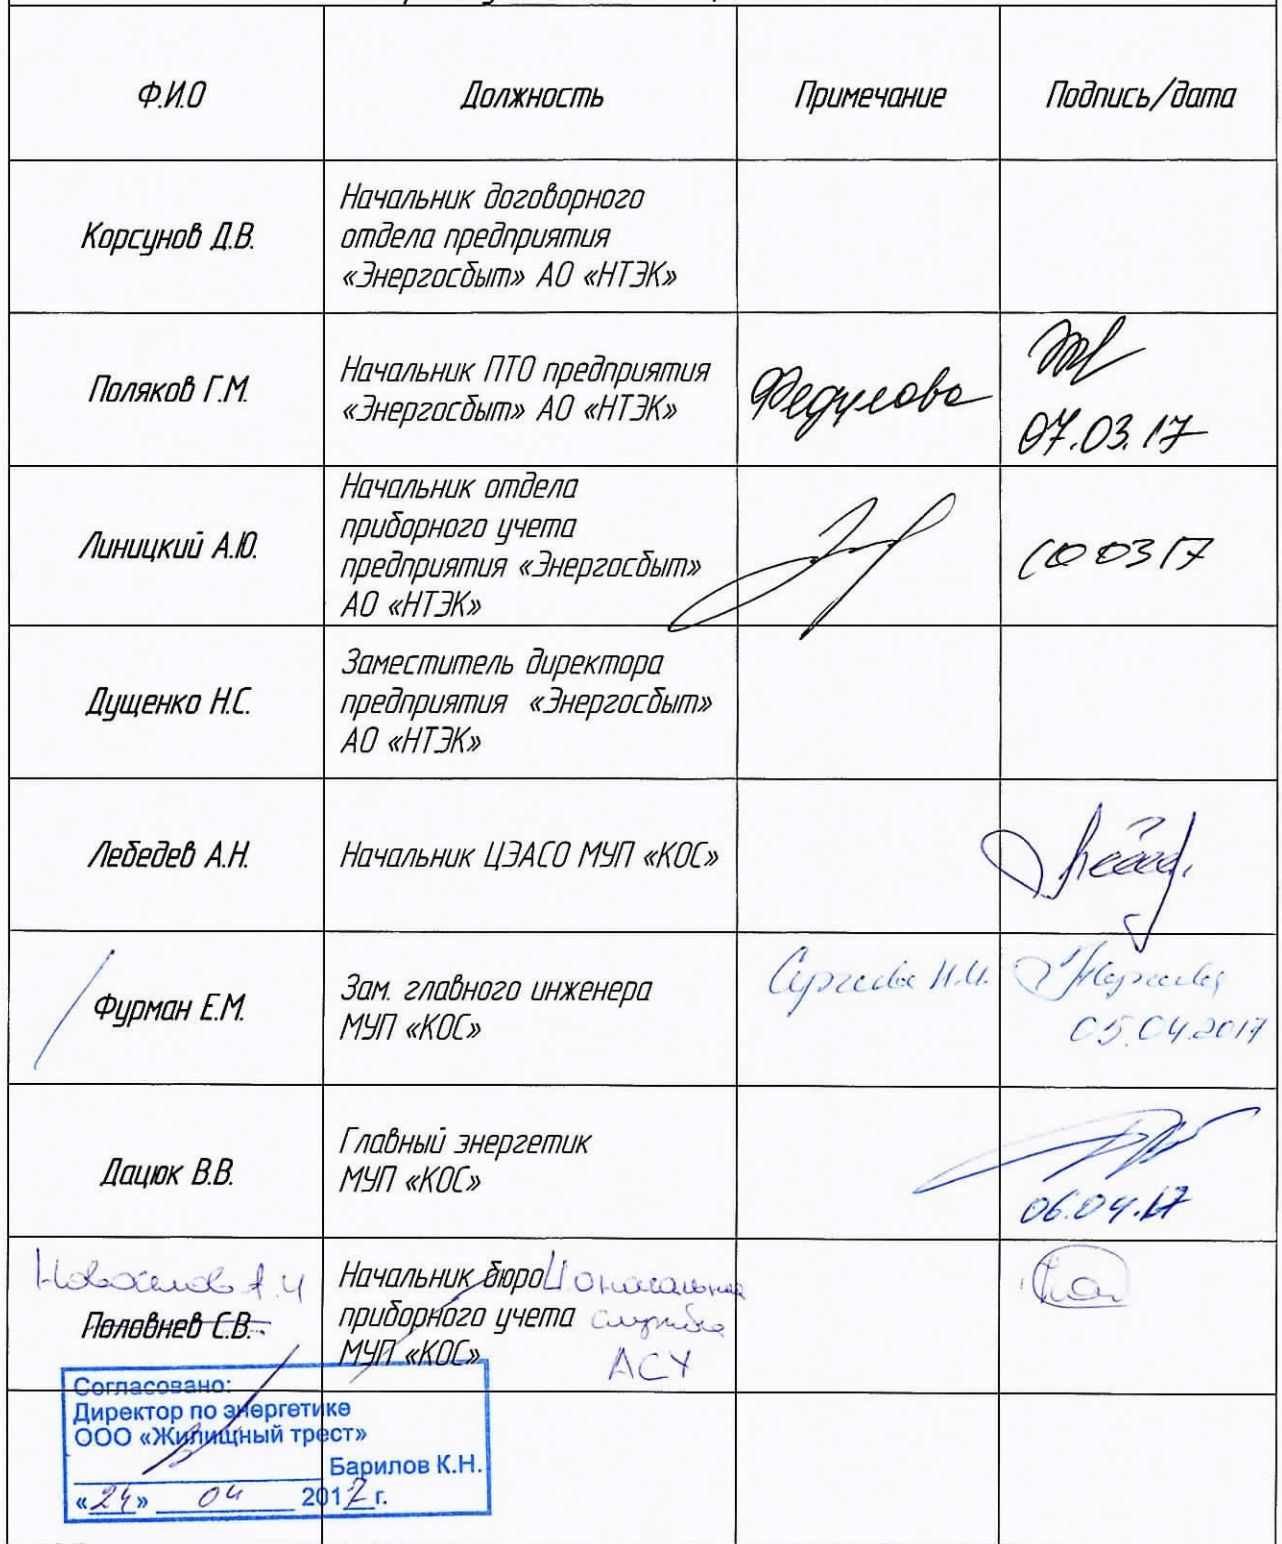 Ф.И.О
Должность
Примечание
Подпись/дата
Корсунов Д.В.
Начальник договорного
отдела предприятия
«Энергосбыт» АО «НТЭК»
Поляков Г.М.
Начальник ПТО предприятия
«Энергосбыт» АО «НТЭК»
Федулова
07.03.17
Линицкий А.Ю.
Начальник отдела
приборного учета
предприятия «Энергосбыт»
АО «НТЭК»
0317
Дущенко Н.С.
Заместитель директора
предприятия «Энергосбыт»
АО «НТЭК»
Лебедев А.Н.
Начальник ЦЭАСО МУП «КОС»
Фурман Е.М.
Зам. главного инженера
МУП «КОС»
05.04.2017
Дацюк В.В.
Главный энергетик
МУП «КОС»
06.04.17
Половнев С.В.
Начальник бюро
приборного учета служба
МУП «КОС» АСУ
Согласовано:
Директор по энергетике
ООО «Жилищный трест»
Барилов К.Н.
«24» 04 2017 г.